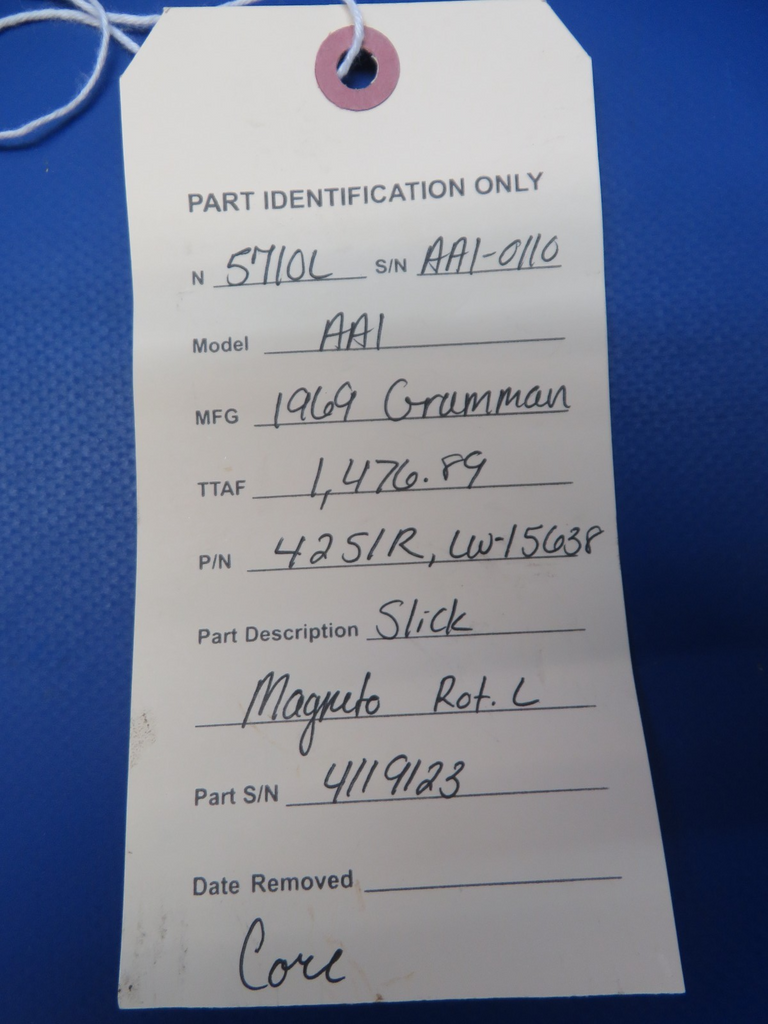 PART IDENTIFICATION ONLY
N 5710L S/N AA1-0110
Model AA1
MFG 1969 Grumman
TTAF 1,476.89
P/N 4251R, LW-15638
Part Description Slick
Magneto Rot. L
Part S/N 4119123
Date Removed
Core